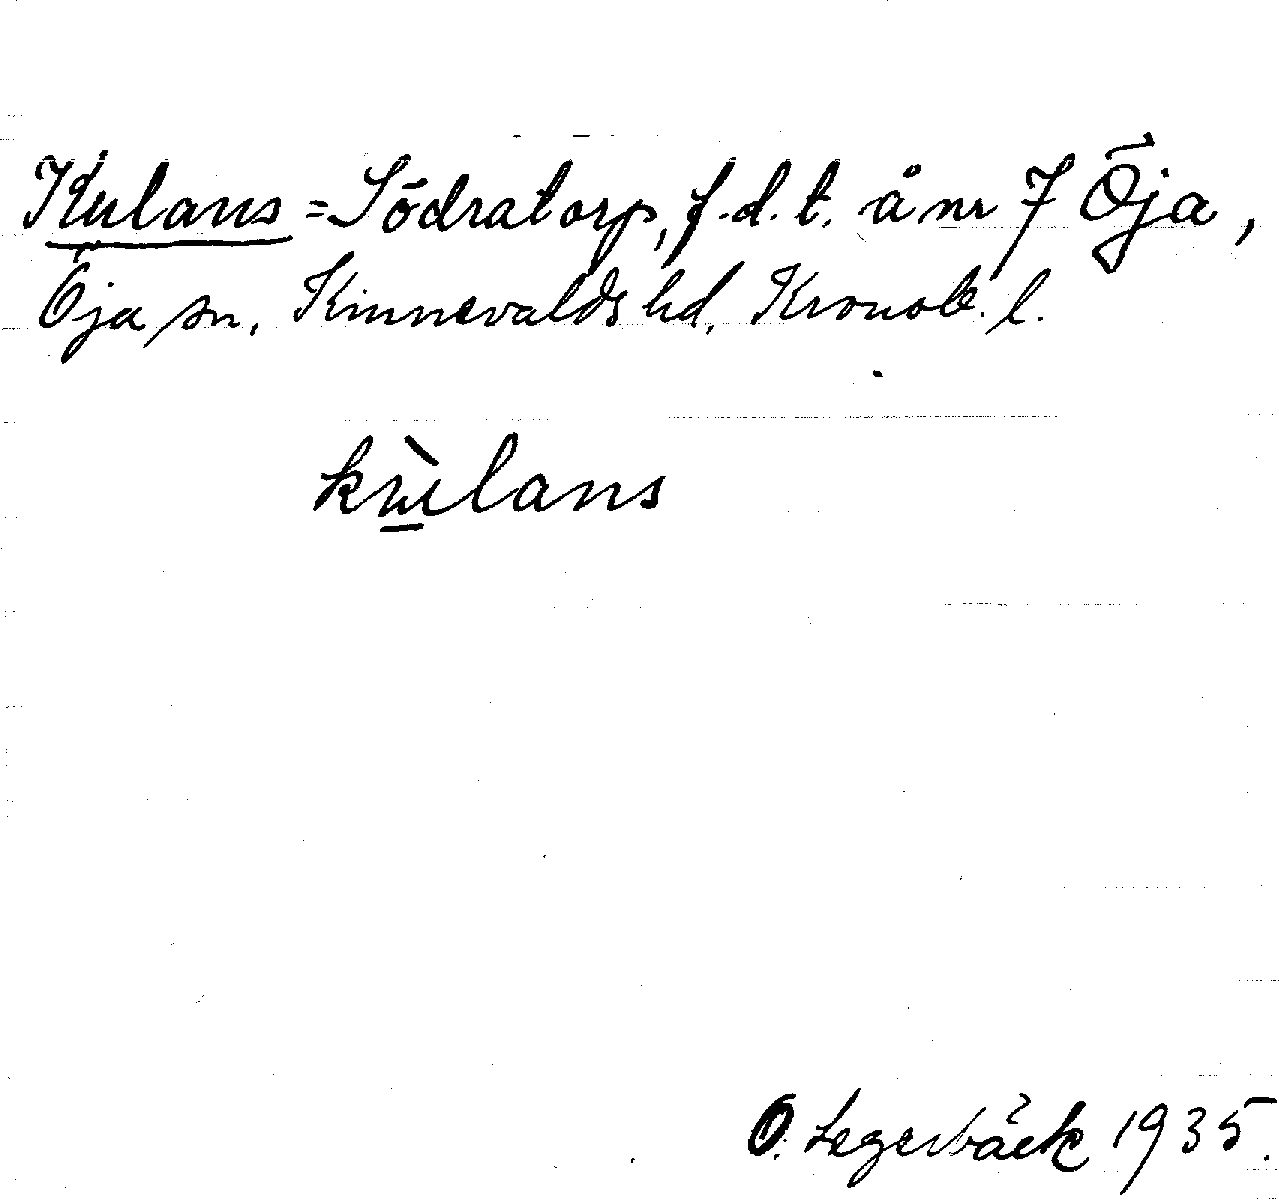 Kulans = Södratorp, f.d.t. å nr 7 Öja,
Öja sn, Kinnevalds hd, Kronob. l.
kùlans
O. Legerbäck 1935.